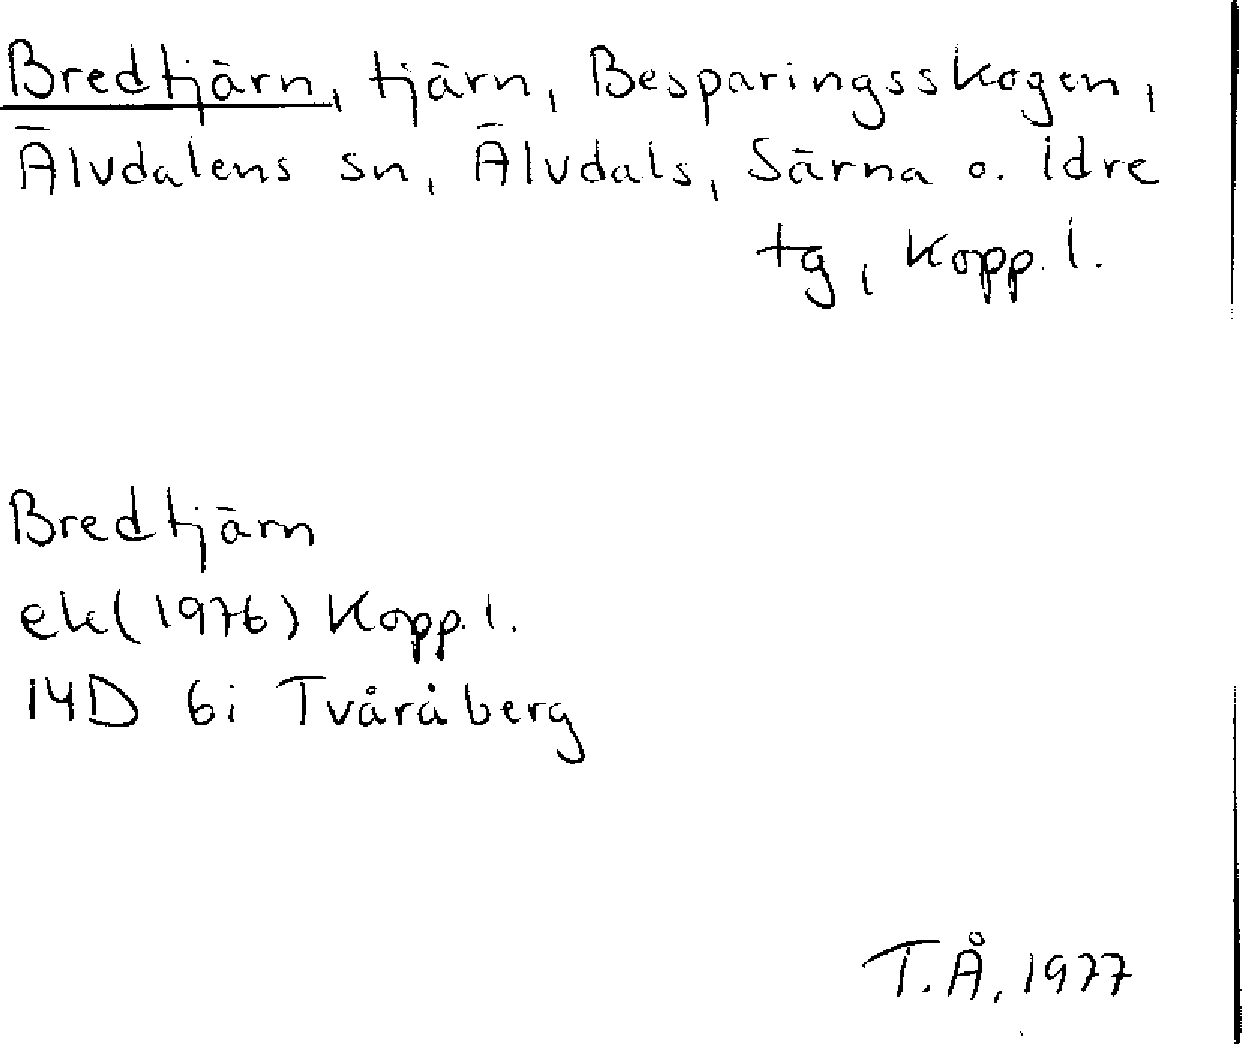 Bredtjärn, tjärn, Besparingsskogen,
Älvdalens sn, Älvdals, Särna o. Idre
tg, Kopp. l.
Bredtjärn
ek(1976) Kopp. l.
14D 6i Tvåråberg
T.Å, 1977